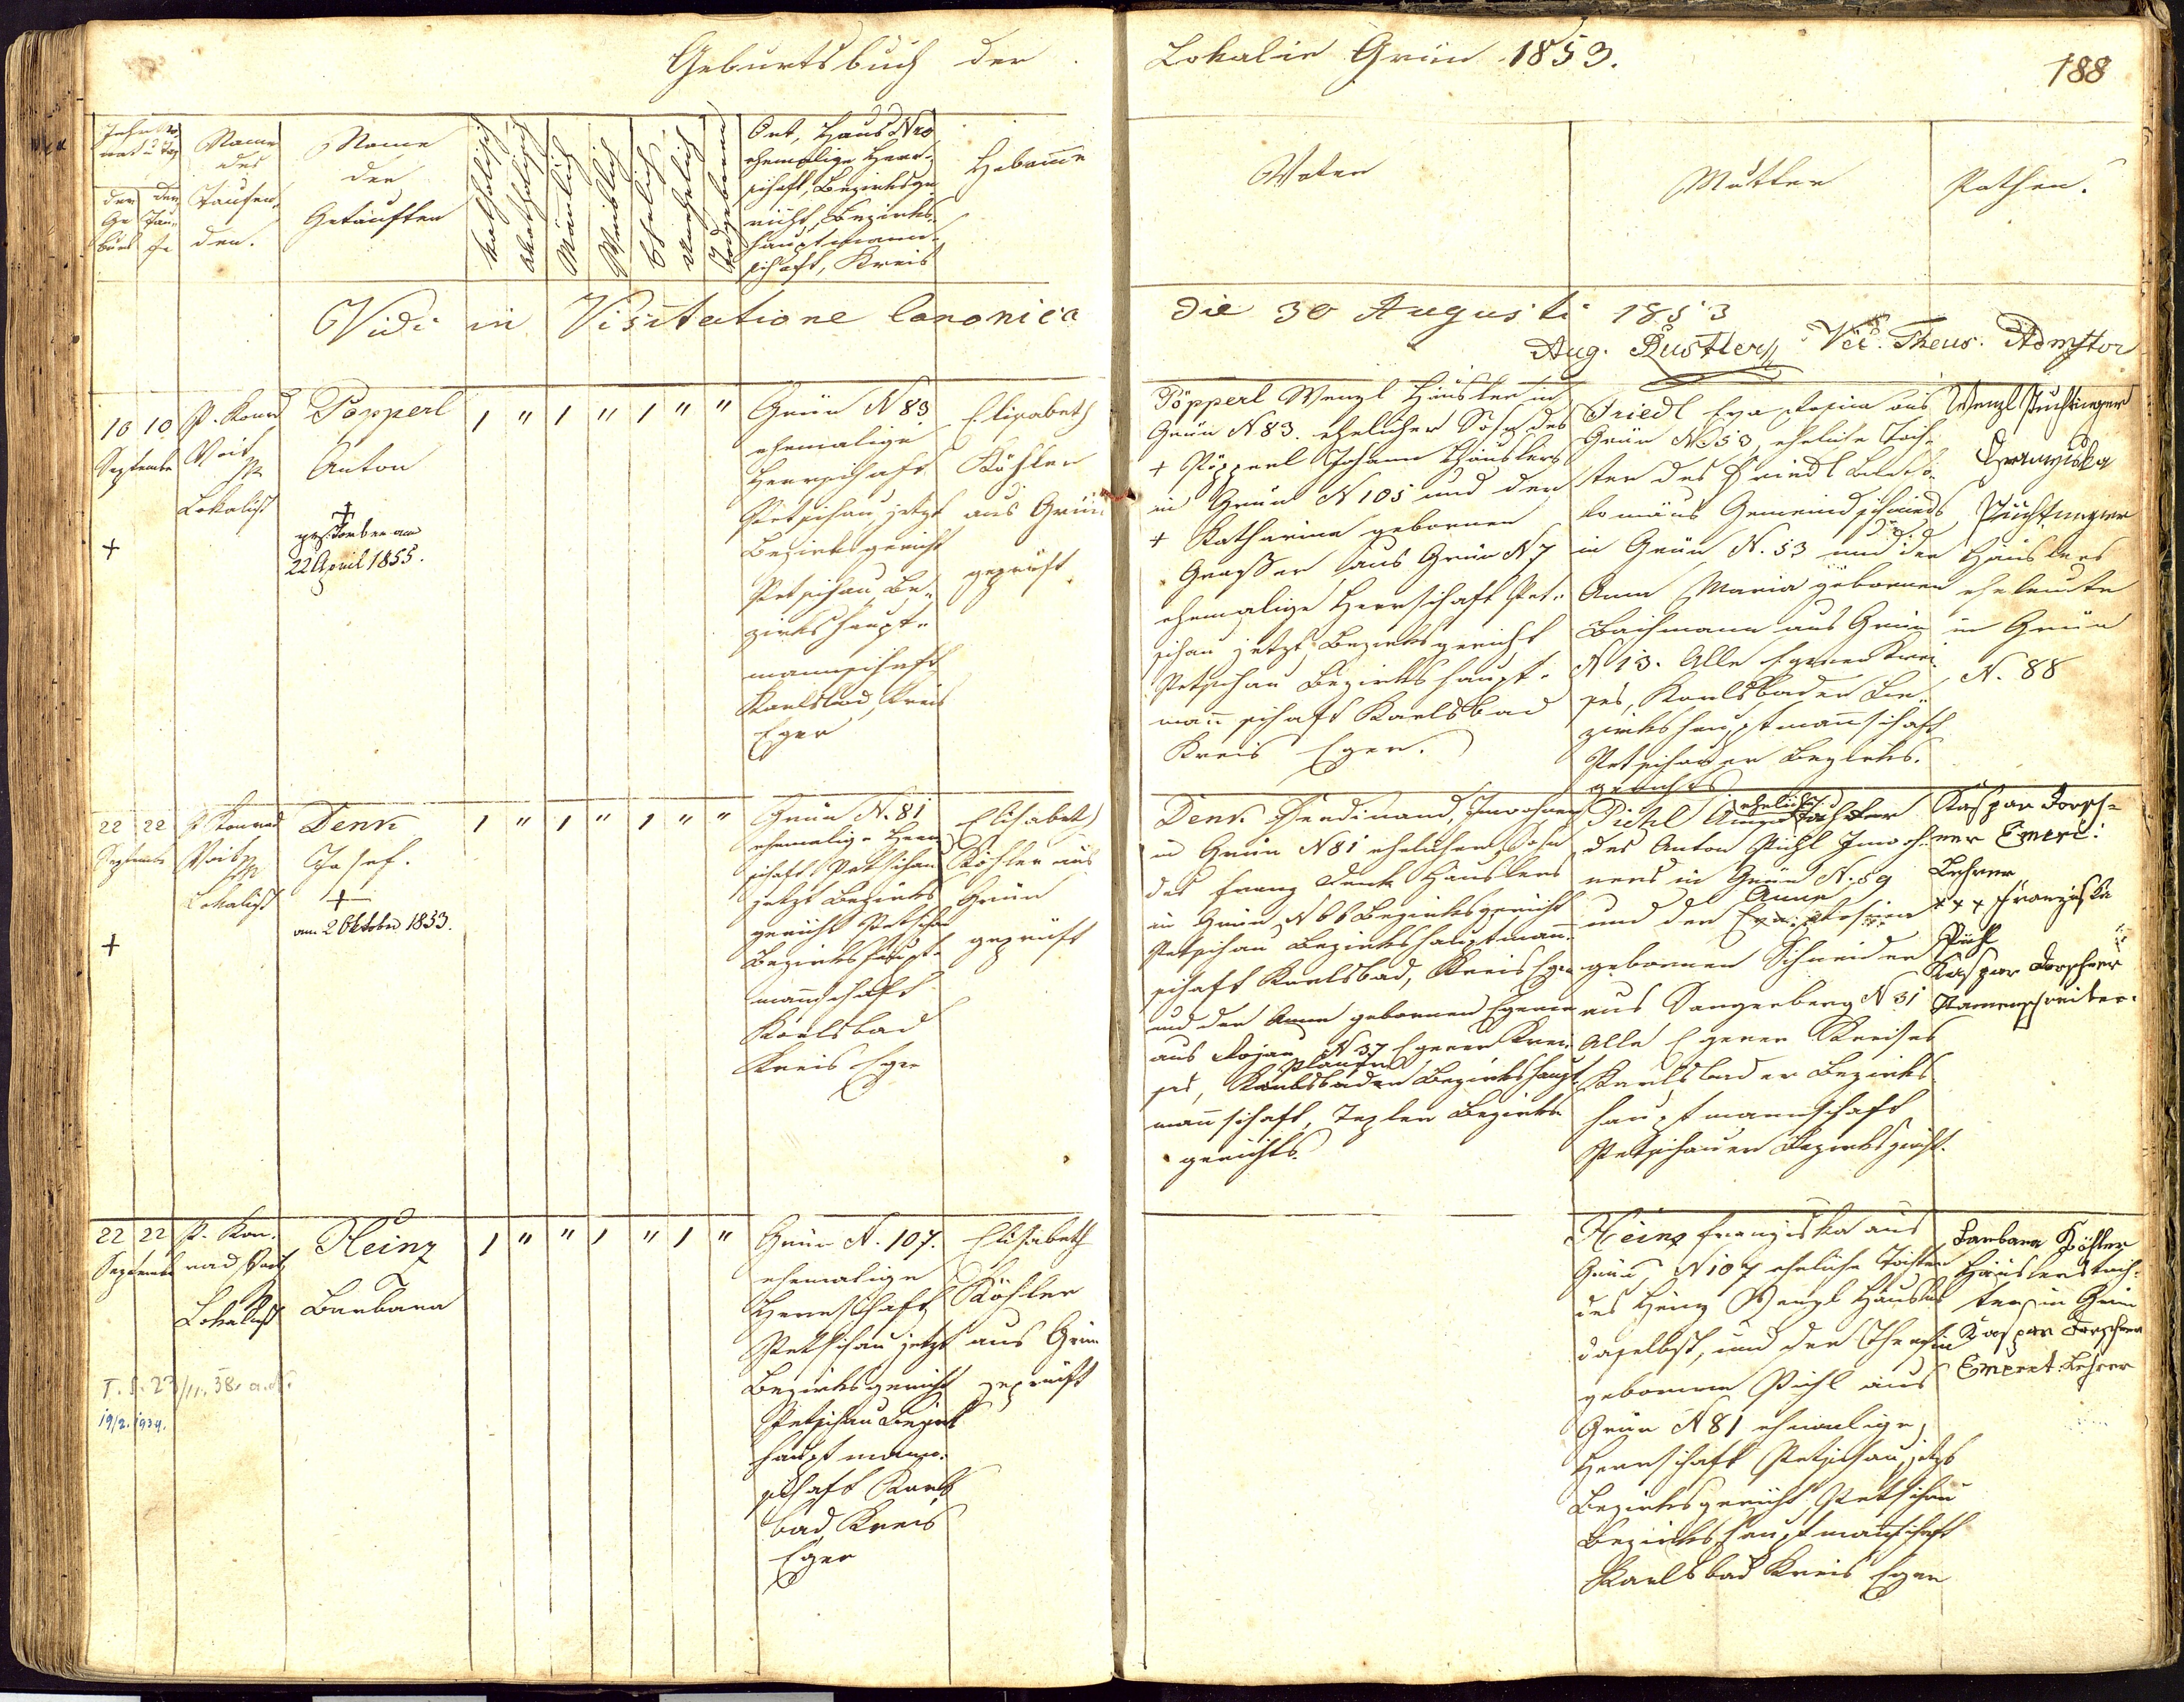 Geburtsbuch der
Lokalie Grün 1853.
188
Name des Taufenden.
Name der Getauften
Katholisch
Akatholisch
Männlich
Weiblich
Ehelich
Unehelich
Ort, Haus Nro
ehemalige Herr-
schaft, Bezirksge
richt, Bezirks-
hauptmann-
schaft, Kreis
Hebamme
Vater
Mutter
Pathen.
Vidi in Visitatione Canonica
die 30 Augusti 1853
Aug. Rustler
10 10
September
P. Konrad
Voit
Lokalist
Pöpperl
Anton
+
gestorben am
22 April 1855.
1 " 1 " 1 " "
Grün N 83
ehemalige
Herrschaft
Petschau, jetzt
Bezirksgericht
Petschau, Be-
zirkshaupt-
mannschaft
Karlsbad, Kreis
Eger
Elisabeth
Köhler
aus Grün
geprüft
Pöpperl Wenzl Häusler in
Grün N 83. ehelicher Sohn des
+ Pöpperl Johann Häuslers
in Grün N 105 und der
+ Katharina gebornen
Grasser aus Grün N 7
ehemalige Herrschaft Pet-
schau jetzt Bezirksgericht
Petschau Bezirkshaupt-
mannschaft Karlsbad
Kreis Eger.
Friedl Eva Rosina aus
Grün N. 53, eheliche Toch-
ter des Friedl Bartho-
lomäus Gemeindschmieds
in Grün N. 53 und der
Anna Maria gebornen
Bachmann aus Grün
N 13. Alle Egerer Krei-
ses, Karlsbader Be-
zirkshauptmannschaft
Petschauer Bezirks-
gerichts
Wenzl
Franziska
Häuslers
eheleute
in Grün
N. 88
22 22
September
P. Konrad
Voit
Lokalist
Denk
Josef.
+
am 2 Oktober 1853.
1 " 1 " 1 " "
Grün N. 81
ehemalige Herr
schaft Petschau
jetzt Bezirks
gericht Petschau
Bezirkshaupt-
mannschaft
Karlsbad
Kreis Eger
Elisabeth
Köhler aus
Grün
geprüft
Denk Ferdinand, Inwohner
in Grün N 81 ehelicher Sohn
des Franz Denk Häuslers
in Grün N 66 Bezirksgericht
Petschau Bezirkshauptmann-
schaft Karlsbad, Kreis Eger
und der Anna gebornen Egerer
aus Rojau N 37 Egerer Krei-
ses, Karlsbader Bezirkshaupt-
mannschaft, Tepler Bezirks
gerichts.
Pichl eheliche Tochter
des Anton Pichl Inwoh-
ners in Grün N. 59
und der Anna
gebornen Schneider
aus Sangerberg N 31
Alle Egerer Kreises
Karlsbader Bezirks
hauptmannschaft
Petschauer Bezirksgericht.
Kaspar Dorsch-
ner Emeri:
Lehrer
+++ Franziska
Pichl
Kaspar Dorschner
Namenschreiber.
22 22
September
P. Kon-
rad Voit
Lokalist
T. S. 23/11. 38. a. d.
19/2. 1934.
Heinz
Barbara
1 " " 1 " 1 "
Grün N. 107.
ehemalige
Herrschaft
Petschau jetzt
Bezirksgericht
Petschau Bezirk
hauptmann-
schaft Karls
bad Kreis
Eger
Elisabeth
Köhler
aus Grün
geprüft
Heinz Franziska aus
Grün, N 107 eheliche Tochter
des Heinz Wenzl Häuslers
daselbst, und der Theresia
gebornen Pichl aus
Grün N 81 ehemalige
Herrschaft Petschau, jetzt
Bezirksgericht Petschau
Bezirkshauptmannschaft
Karlsbad Kreis Eger
Barbara Köhler
Häuslerstoch-
ter in Grün
Kaspar Dorschner
Emerit. Lehrer